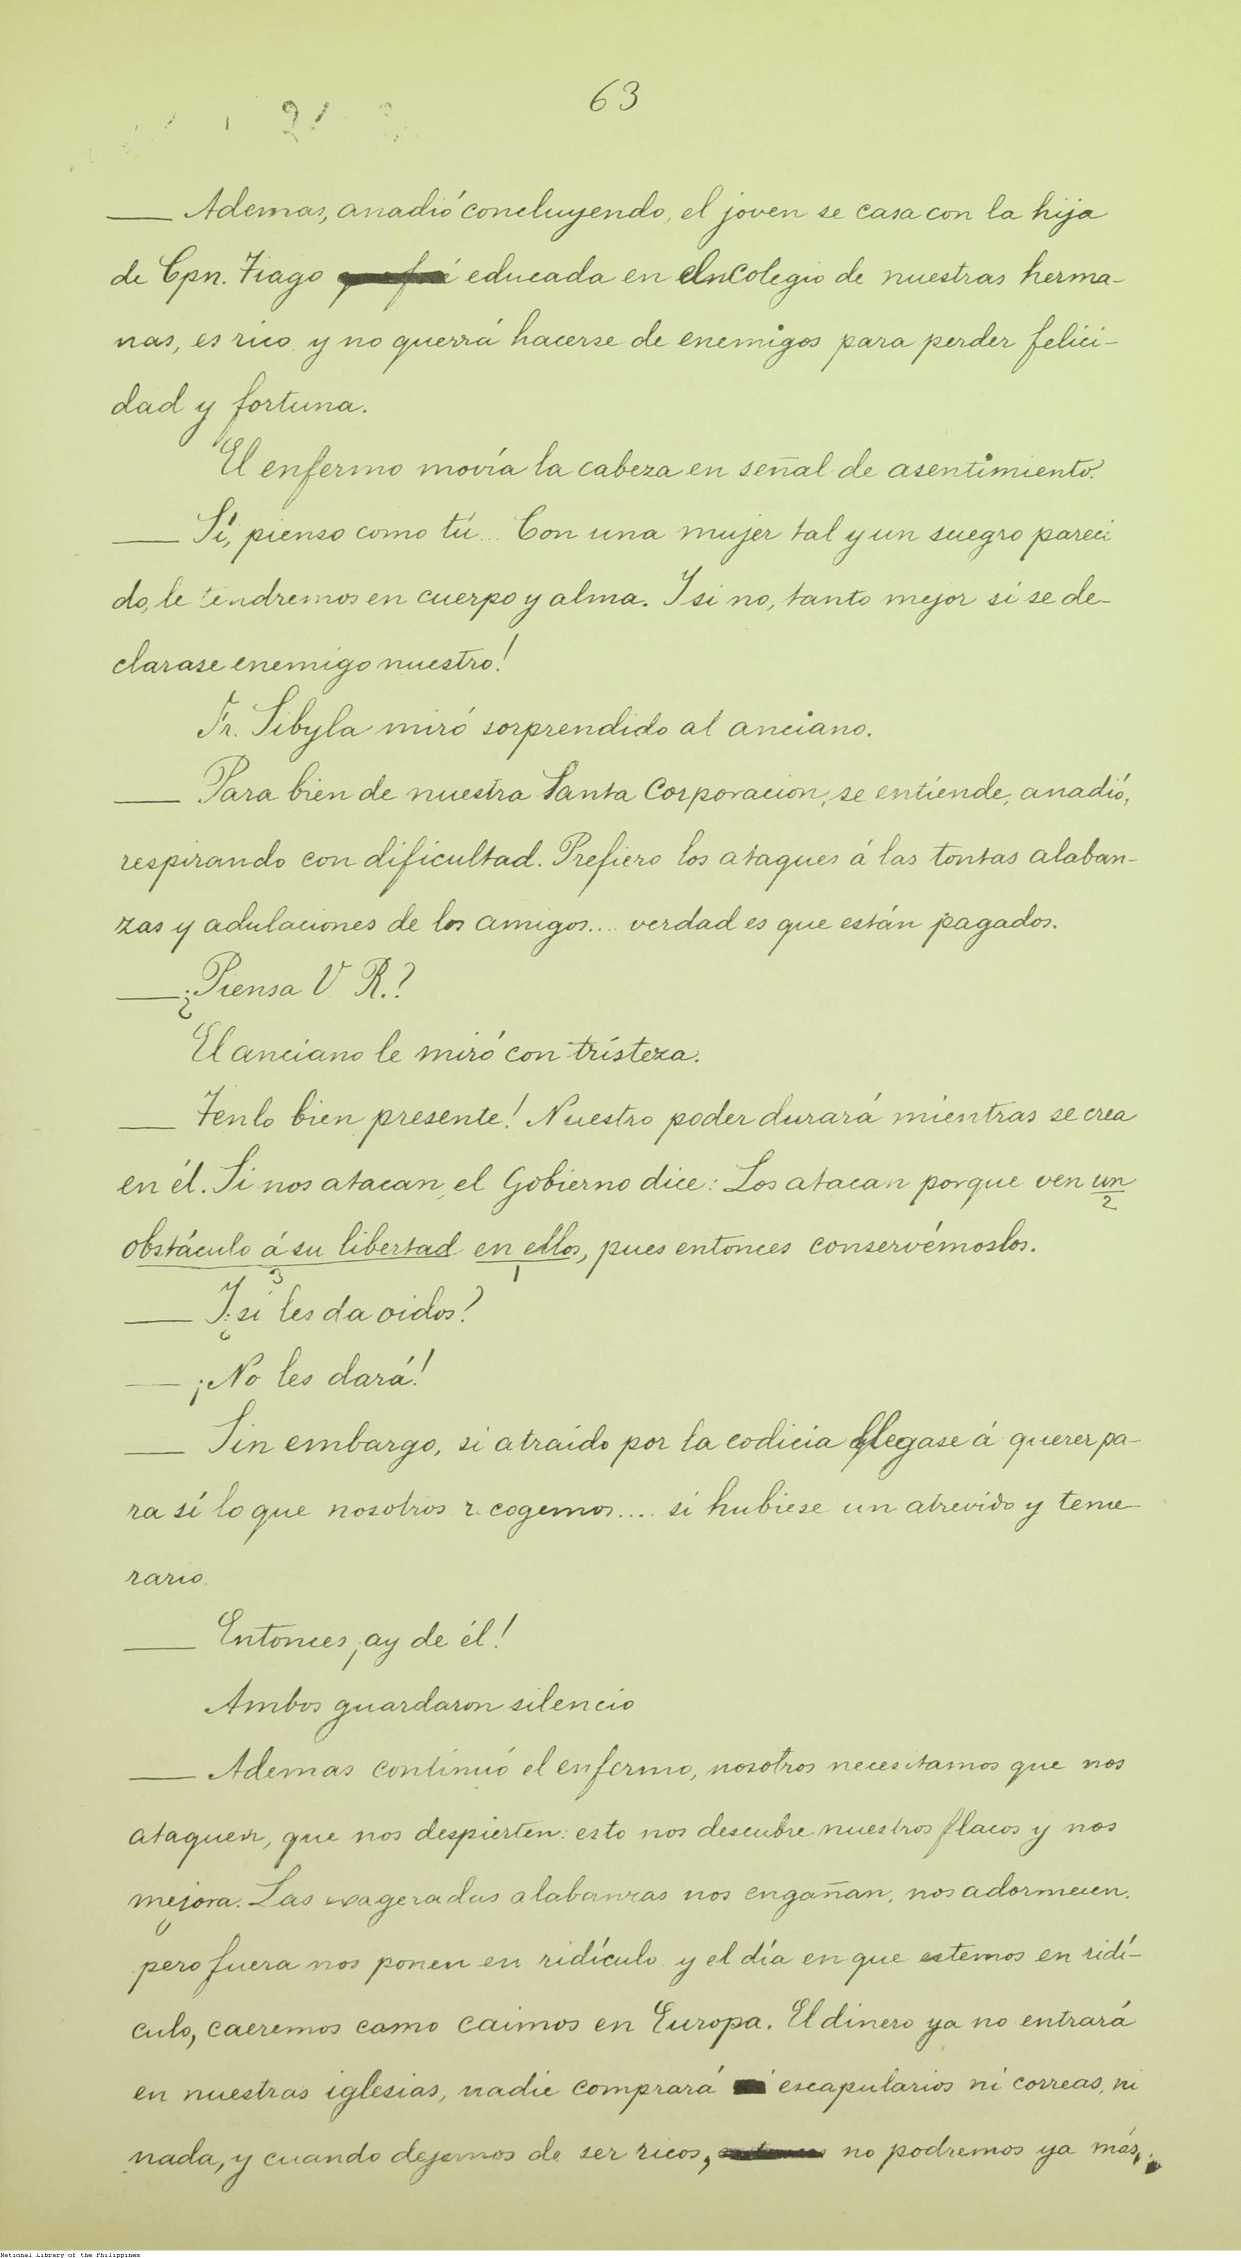 63
— Ademas, anadió concluyendo, el joven se casa con la hija
de Cpn. Tiago educada en el Colegio de nuestras herma-
nas, es rico y no querrá hacerse de enemigos para perder felici-
dad y fortuna.
El enfermo movía la cabeza en señal de asentimiento.
— Sí, pienso como tú... Con una mujer tal y un suegro pareci
do, le tendremos en cuerpo y alma. Y si no, tanto mejor si se de-
clarase enemigo nuestro!
Fr. Sibyla miró sorprendido al anciano.
— Para bien de nuestra Santa Corporacion, se entiende, anadió,
respirando con dificultad. Prefiero los ataques á las tontas alaban-
zas y adulaciones de los amigos.... verdad es que están pagados.
— ¿Piensa V. R.?
El anciano le miró con tristeza.
— Tenlo bien presente! Nuestro poder durará mientras se crea
en él. Si nos atacan, el Gobierno dice: Los atacan porque ven un
2
obstáculo á su libertad en ellos, pues entonces conservémoslos.
3 1
— Y ¿si les da oidos?
— ¡No les dará!
— Sin embargo, si atraido por la codicia llegase á querer pa-
ra sí lo que nosotros recogemos.... si hubiese un atrevido y teme-
rario.
— Entonces ¡ay de él!
Ambos guardaron silencio
— Ademas continuó el enfermo, nosotros necesitamos que nos
ataquen, que nos despierten: esto nos descubre nuestros flacos y nos
mejora. Las exageradas alabanzas nos engañan, nos adormecen,
pero fuera nos ponen en ridículo y el día en que estemos en ridí-
culo, caeremos como caimos en Europa. El dinero ya no entrará
en nuestras iglesias, nadie comprará escapularios ni correas, ni
nada, y cuando dejemos de ser ricos, no podremos ya más,
National Library of the Philippines